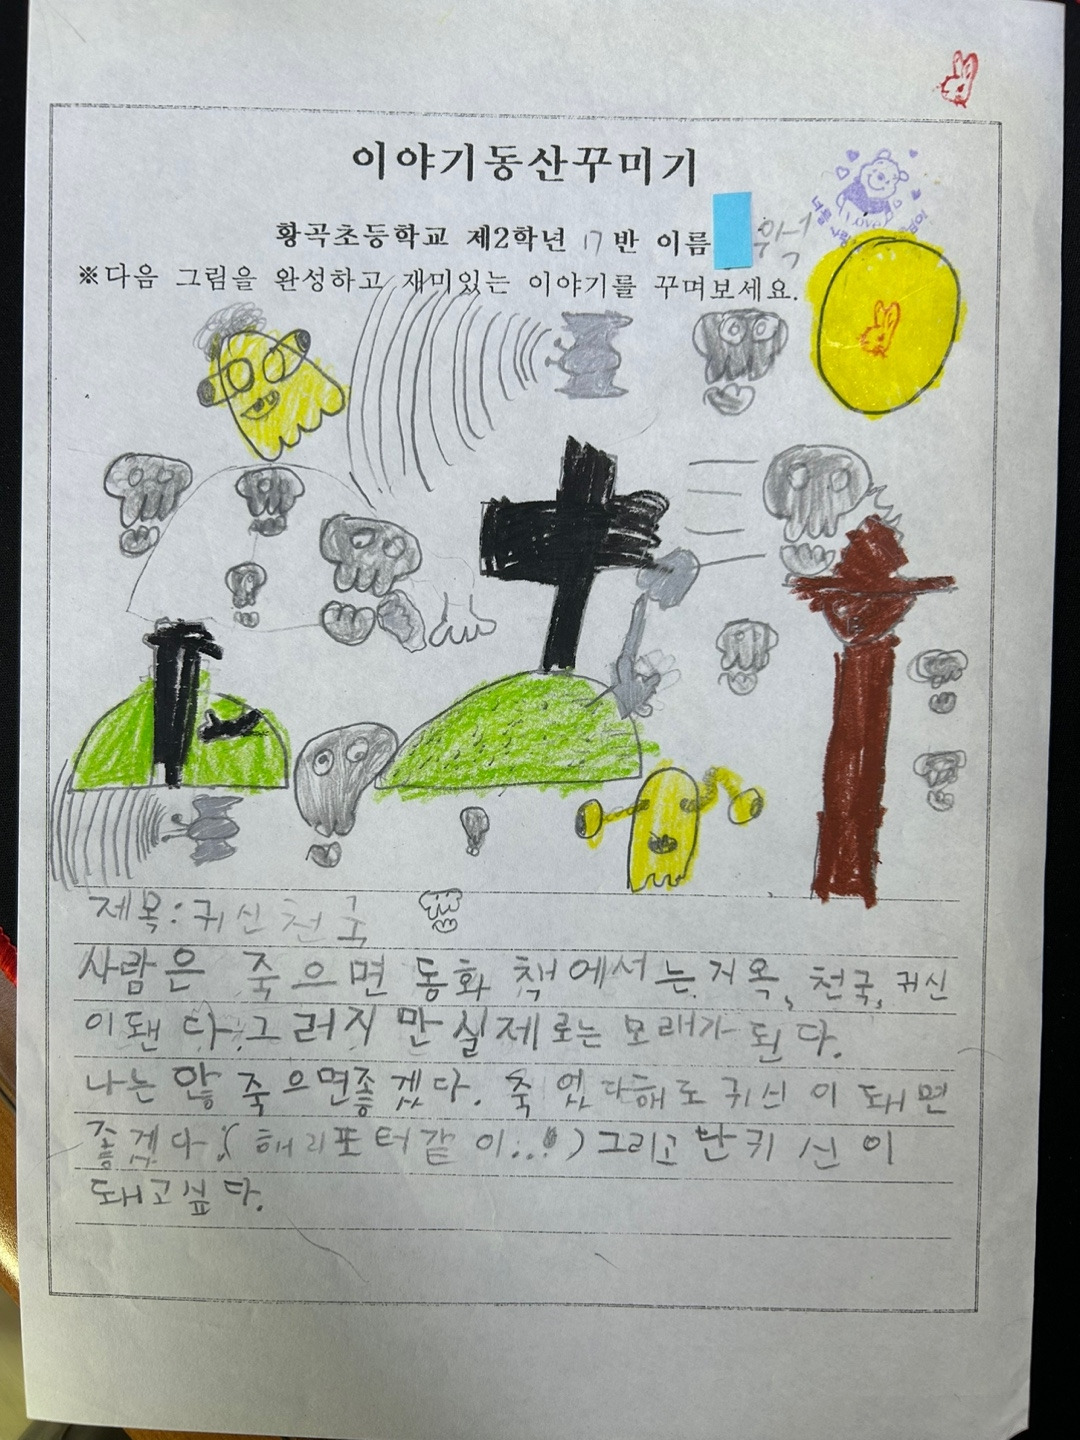 이야기동산꾸미기
황곡초등학교 제2학년 17 반 이름
※다음 그림을 완성하고 재미있는 이야기를 꾸며보세요.
제목:귀신천국
사람은 죽으면 동화 책에서는 지옥, 천국, 귀신
이됀 다. 그러지 만 실제로는 모래가 된다.
나는 않 죽으면좋겠다. 죽 었다해도 귀신 이 돼면
좋겠다.(해리포터같이...!) 그리고 난귀 신 이
돼고싶다.